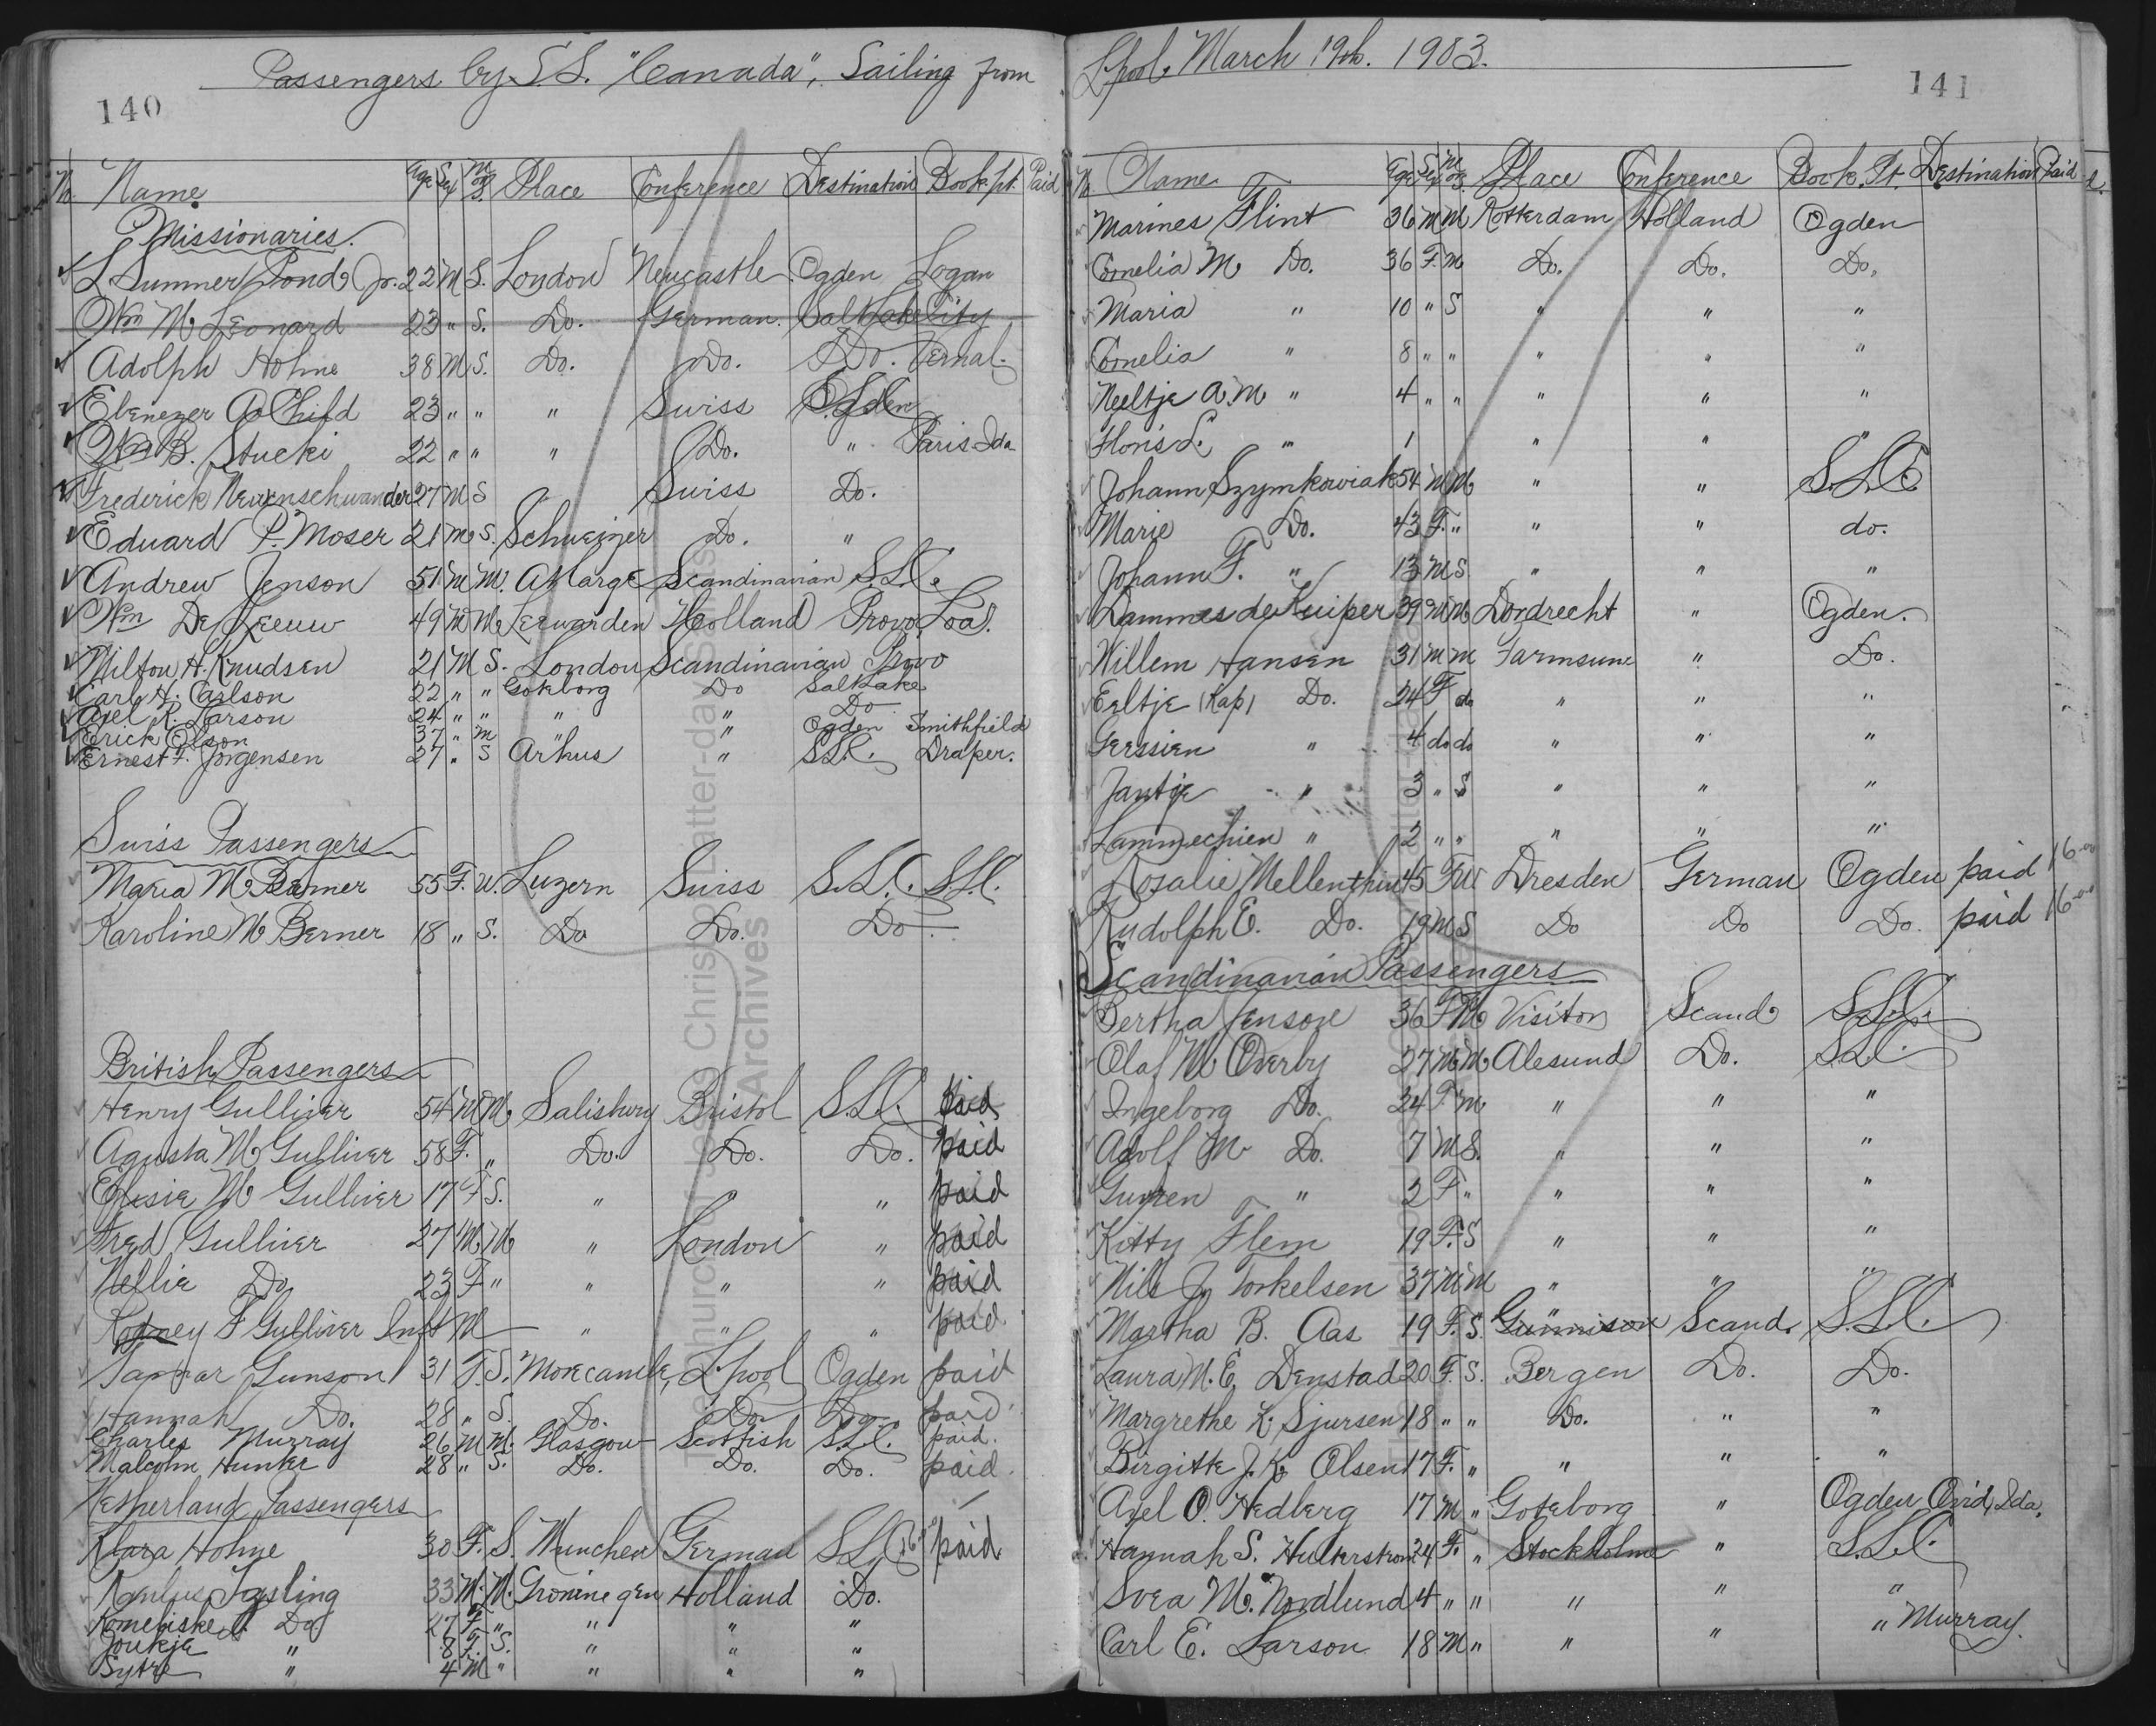 Passengers by S.S. "Canada", Sailing from
140
No. Name Age Sex M or S. Place Conference Destination Book. pt. Paid
Missionaries.
L Sumner Pond Jr. 22 M S. London Newcastle Ogden Logan
Wm M. Leonard 23 " S. Do. German. Salt Lake City
Adolph Hohne 38 M S. Do. Do. Do. Vernal.
Ebenezer A. Child 23 " " " Swiss Ogden
Wm B. Stucki 22 " " " Do. " Paris Ida
Frederick Neuenschwander 27 M S " Swiss Do.
Eduard P. Moser 21 m S. Schweizer Do. "
Andrew Jenson 51 M M. At large Scandinavian S.L.C.
Wm De Leeuw 49 M M. Leewarden Holland Provo Loa.
Milton H. Knudsen 21 M S. London Scandinavian Provo
Carl H. Carlson 22 " " Goteborg Do Salt Lake
Axel R. Larson 24 " " " " Do
Erick Olson 37 " m " " Ogden Smithfield
Ernest F. Jorgensen 27 " S Arhus " S.L.C. Draper.
Swiss Passengers
Maria M. Berner 55 F. W. Luzern Swiss S.L.C. S.L.C.
Karoline M Berner 18 " S. Do Do. Do
British Passengers
Henry Gulliver 54 M M. Salisbury Bristol S.L.C. paid
Agusta M Gulliver 58 F. " Do. Do. Do. paid
Elsie M Gulliver 17 F S. " " " paid
Fred Gulliver 27 M. M " London " paid
Nellie Do 23 F " " " " paid
Rodney F Gulliver Inft M " " " paid
Gunson 31 F. S. Morecambe, L.pool Ogden paid
Hannah Do. 28 " S. Do. Do. Do. paid
Charles Murray 26 M M. Glasgow Scottish S.L.C. paid.
Malcolm Hunter 28 " S. Do. Do. Do. paid.
Netherland Passengers
Klara Hohne 30 F. S. Munchen German S.L.C. 16 paid
33 M. M. Groningen Holland Do.
Do. 27 F " " " "
Joukje " 8 F. S. " " "
Sytze " 4 M " " " "
L.pool. March 19th. 1903.
141
No. Name Age Sex M or S. Place Conference Book. Pt. Destination Paid
Marines Flint 36 M M Rotterdam Holland Ogden
Cornelia M Do. 36 F. m Do. Do. Do.
Maria " 10 " S " " "
Cornelia " 8 " " " " "
Neeltje A. M " 4 " " " " "
Floris L. " 1 " " "
Johann Szymkowiak 54 M M " " S.L.C.
Marie Do. 43 F. " " " do.
Johann F. " 13 M S. " " "
Lammes de Kuiper 39 M M Dordrecht " Ogden.
Willem Hansen 31 m m Farmsum " Do.
Eeltje (Kap) Do. 24 F do " " "
Gerssien " 4 do do " " "
Jantje " 3 " S " " "
Lammechien " 2 " " " " "
Rosalie Mellenthin 45 F W Dresden German Ogden paid 16-00
Rudolph E. Do. 19 M S Do Do Do. paid 16-00
Scandinavian Passengers
Bertha Jenson 36 F M Visitor Scand. S.L.C.
Olaf M Overby 27 M M Alesund Do. S.L.C.
Ingeborg Do. 24 F m " " "
Adolf M Do. 7 M S. " " "
Guyren " 2 F " " " "
Kitty Flem 19 F. S " " "
Nils J. Torkelsen 37 M M " " "
Martha B. Aas 19 F. S. Gunnison Scand. S.L.C.
Laura M. E. Denstad 20 F. S. Bergen Do. Do.
Margrethe K. Sjursen 18 " " Do. " "
Birgitte J. K. Olsen 17 F. " " " "
Axel O. Hedberg 17 M " Goteborg " Ogden Ovid, Ida.
Hannah S. Hulterstrom 24 F. " Stockholm " S.L.C.
Svea M. Nordlund 4 " " " " "
Carl E. Larson 18 M " " " " Murray.